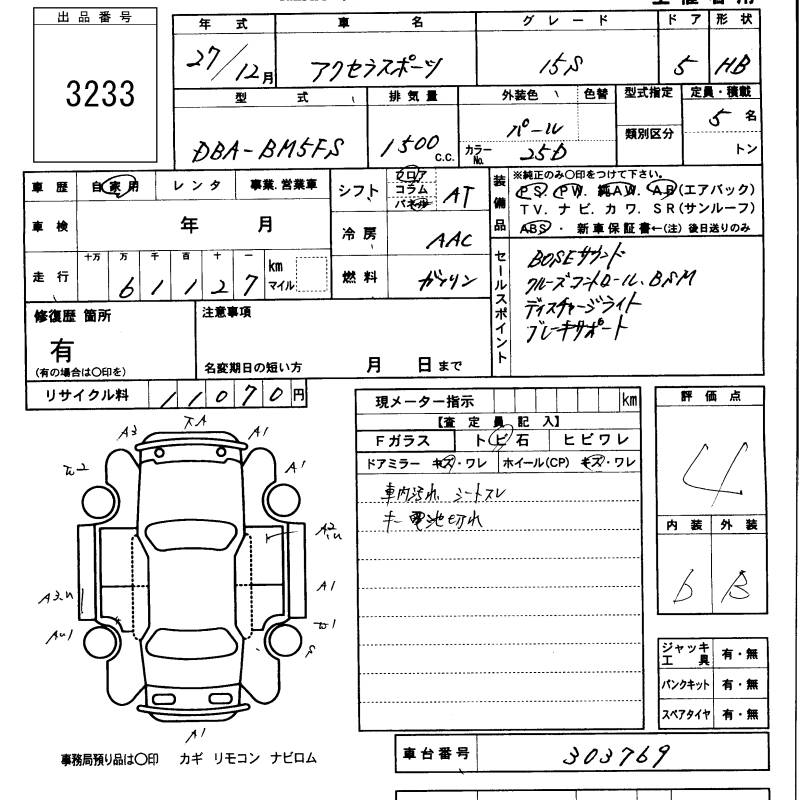 出品番号
3233
年式 車名 グレード ドア 形状
27/12月 アクセラスポーツ 15S 5 HB
型式 排気量 外装色 色替 型式指定 定員・積載
DBA-BM5FS 1500 C.C. パール 5名
カラーNo. 25D 類別区分 トン
車歴 自家用 レンタ 事業.営業車
シフト フロア コラム パネル AT
装備品 ※純正のみ〇印をつけて下さい。
PS PW. 純AW. AB(エアバック)
TV. ナビ. カワ. SR(サンルーフ)
ABS ・ 新車保証書←(注) 後日送りのみ
車検 年 月
冷房 AAC
走行 十万 万 千 百 十 一
61127 km マイル
燃料 ガソリン
セールスポイント
BOSEサウンド
クルーズコントロール、BSM
ディスチャージライト
ブレーキサポート
修復歴 箇所
有
(有の場合は〇印を)
注意事項
名変期日の短い方 月 日まで
リサイクル料 11070円
現メーター指示 km
【査定員記入】
Fガラス トビ石 ヒビワレ
ドアミラー キズ・ワレ ホイール(CP) キズ・ワレ
車内汚れ シートスレ
キー電池切れ
評価点
4
内装 外装
b B
A3 A1
A1
A2
A1
A1
ジャッキ工具 有・無
パンクキット 有・無
スペアタイヤ 有・無
事務局預り品は〇印 カギ リモコン ナビロム
車台番号 303769